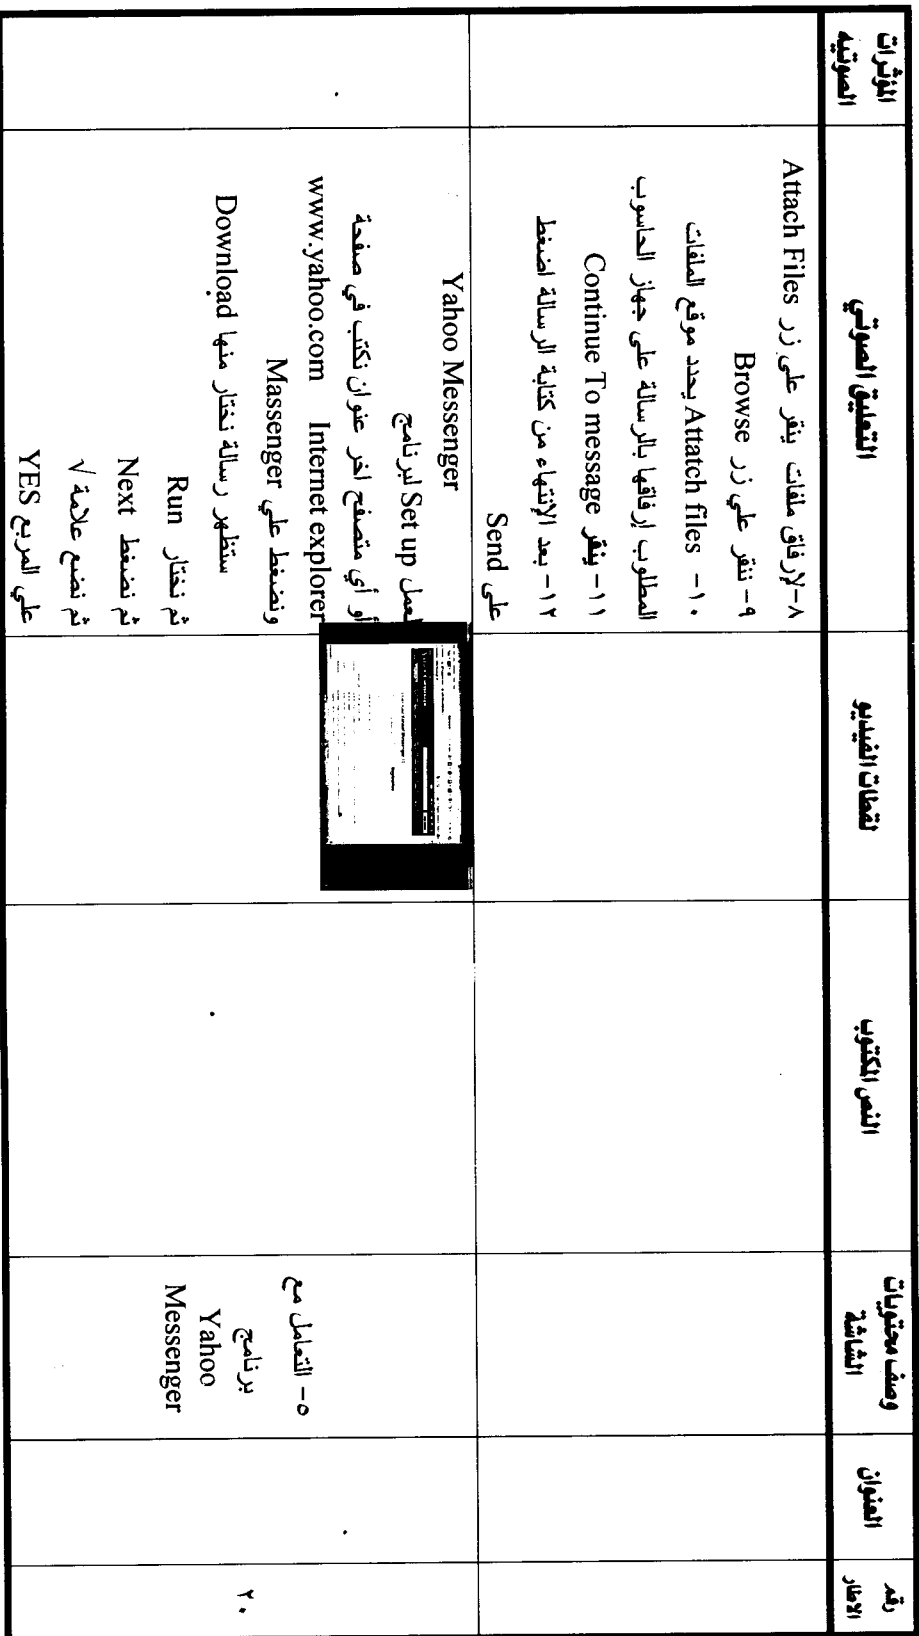 رقم
الاطار
العنوان
وصف محتويات
الشاشة
النص المكتوب
لقطات الفيديو
التعليق الصوتي
المؤثرات
الصوتيه
٨-لإرفاق ملفات ينقر على زر Attach Files
٩- ننقر علي زر Browse
١٠- Attatch files يحدد موقع الملفات
المطلوب إرفاقها بالرسالة على جهاز الحاسوب
١١- ينقر Continue To message
١٢- بعد الإنتهاء من كتابة الرسالة اضغط
على Send
٢٠
٥- التعامل مع
برنامج
Yahoo
Messenger
Yahoo Messenger
لعمل Set up لبرنامج
أو أي متصفح اخر عنوان نكتب في صفحة
www.yahoo.com Internet explorer
ونضغط علي Massenger
ستظهر رسالة نختار منها Download
ثم نختار Run
ثم نضغط Next
ثم نضع علامة √
علي المربع YES